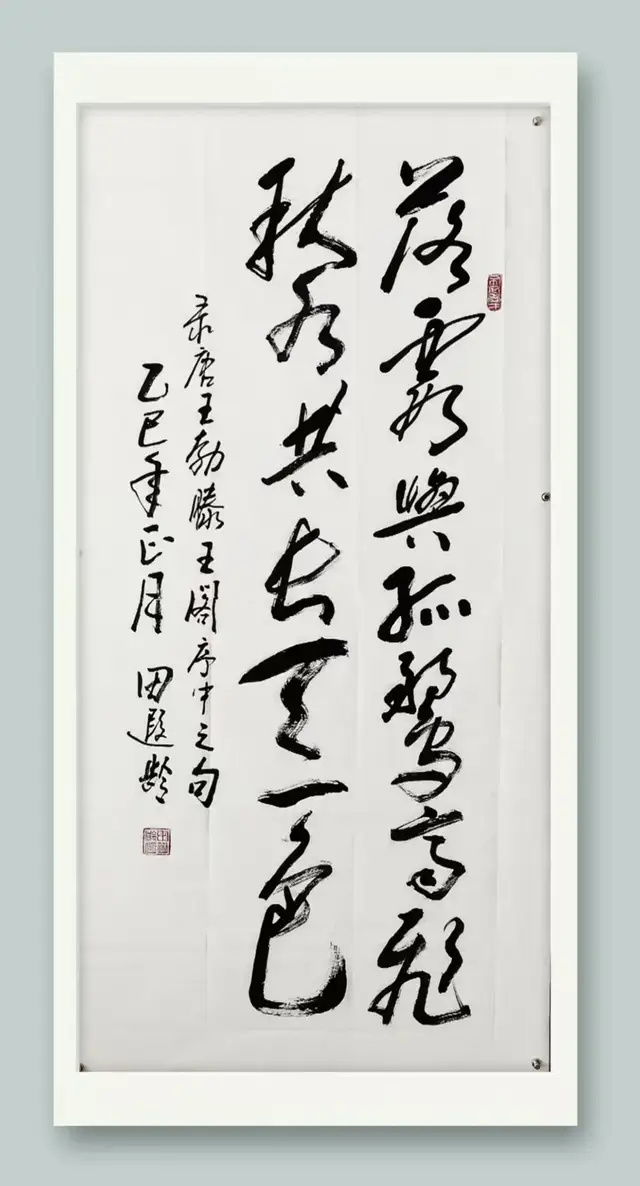 落霞與孤鶩高飛
秋水共长天一色
录唐王勃滕王閣序中之句
乙巳年正月 田遐齡